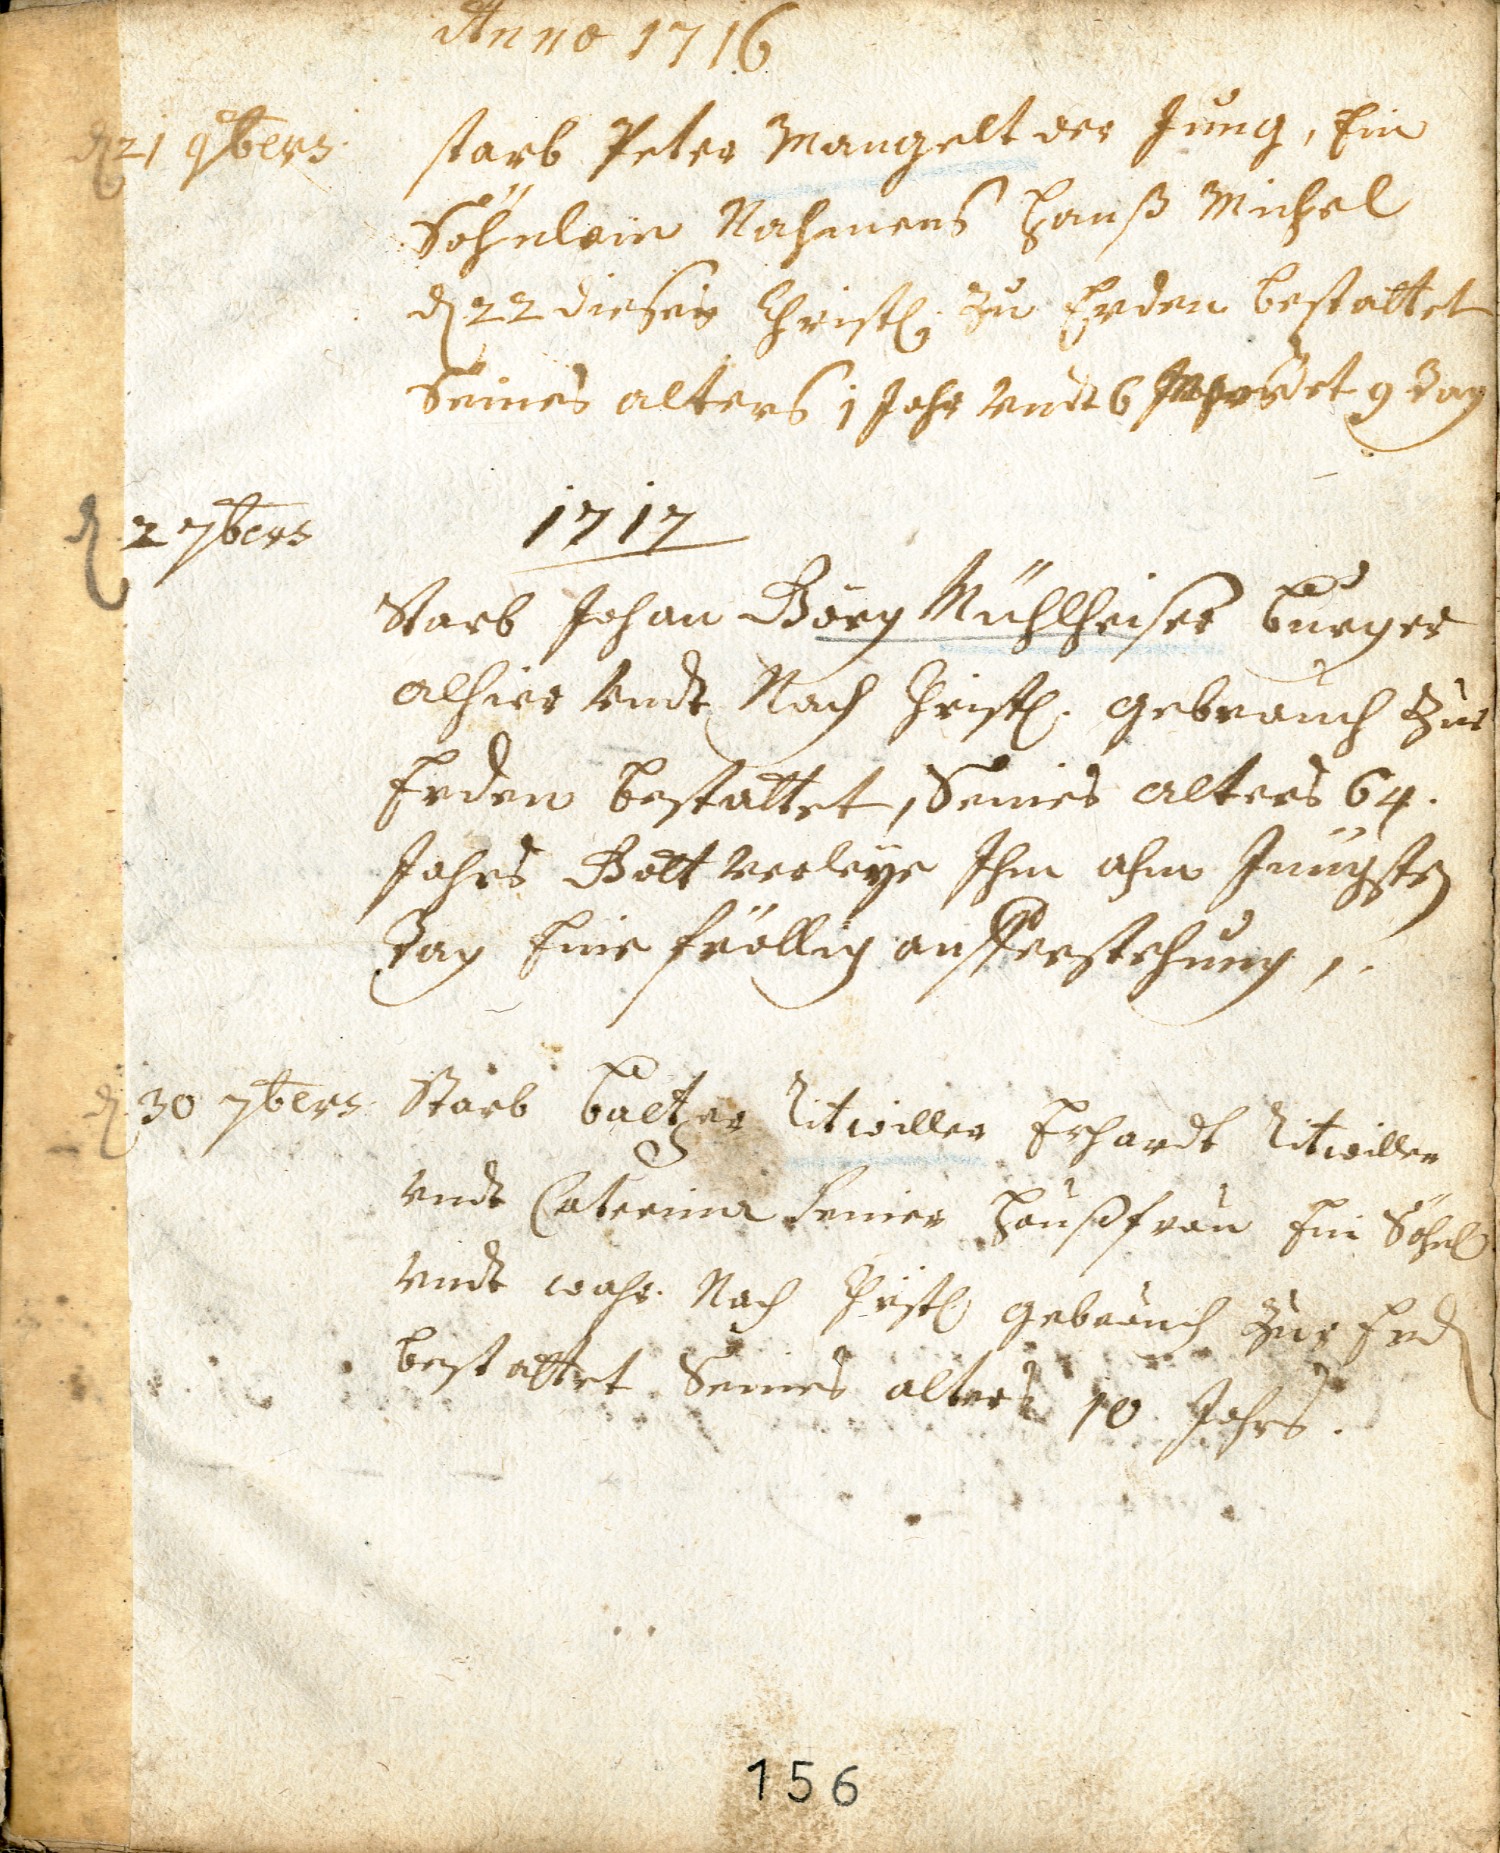 Anno 1716
d 21 9bers starb Peter Mangelt der Jung, Ein
Söhnlein Nahmens Hanß Michel
d 22 dieses Christl. zu Erden bestattet
Seines alters 1 Jahr undt 6 9 Tag
d 2 7bers 1717
Starb Johan Görg Mühlheiser burger
alhier undt Nach Christl. gebrauch zur
Erden bestattet, Seines alters 64.
Jahrs Gott verleye Ihm ahm Jüngsten
Tag Eine fröllig aufferstehung,.
d 30 7bers Starb baltzer Litwiller Erhardt Litwiller
undt Caterina seiner Haußfrau Ein Söhnl
undt wahr Nach Christl gebrauch zur Erd
bestattet Seines alters 10 Jahrs.
156